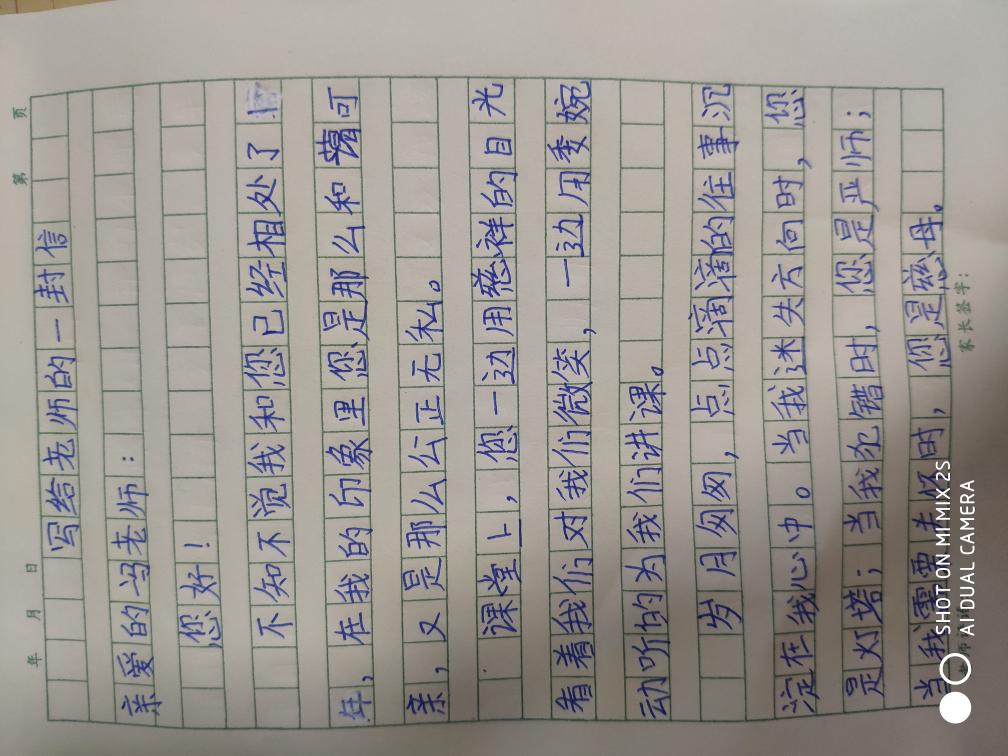 年 月 日 第 页
写给老师的一封信
亲爱的冯老师:
您好!
不知不觉我和您已经相处了
年,在我的印象里您是那么和蔼可
亲,又是那么公正无私。
课堂上,您一边用慈祥的目光
看着我们对我们微笑,一边用委婉
动听的为我们讲课。
岁月匆匆,点点滴滴的往事沉
淀在我心中。当我迷失方向时,您
是灯塔;当我犯错时,您是严师;
当我需要关怀时,您是慈母。
家长签字:
SHOT ON MI MIX 2S
AI DUAL CAMERA